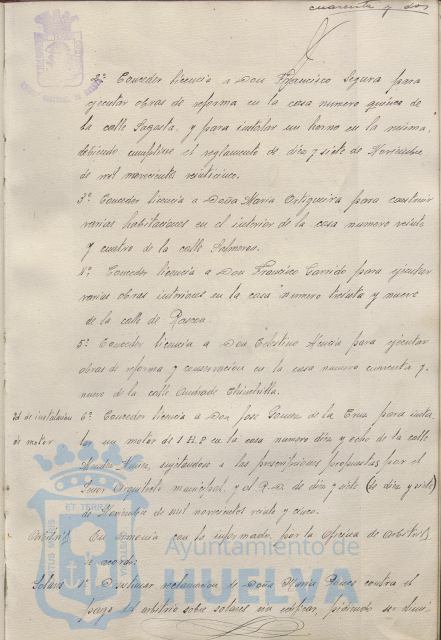 cuarenta y dos
2º Conceder licencia a Don Francisco Segura para
ejecutar obras de reforma en la casa número quince de
la calle Sagasta, y para instalar un horno en la misma,
debiendo cumplirse el reglamento de diez y siete de Noviembre
de mil novecientos veinticinco.
3º Conceder licencia a Doña María Ortigueira para construir
varias habitaciones en el interior de la casa número veinte
y cuatro de la calle Palmeras.
4º Conceder licencia a Don Francisco Garrido para ejecutar
varias obras interiores en la casa número treinta y nueve
de la calle de Rascon.
5º Conceder licencia a Don Celestino para ejecutar
obras de reforma y conservación en la casa numero cuarenta y
nueve de la calle Andrade Chinchilla.
Id de instalacion
de motor
6º Conceder licencia a Don José Gomez de la Cruz para insta
lar un motor de 1 H.P en la casa número diez y ocho de la calle
Mendez Nuñez, sujetandose a las prescripciones propuestas por el
Señor Arquitecto municipal, y al R. D. de diez y siete (de diez y siete)
de Noviembre de mil novecientos veinte y cinco.
Arbitrios
En armonia con lo informado por la oficina de arbitrios
se acordó:
Solares
1º Desestimar reclamacion de Doña María contra el
pago del arbitrio sobre solares sin edificar, pidiendo se
Ayuntamiento de
HUELVA